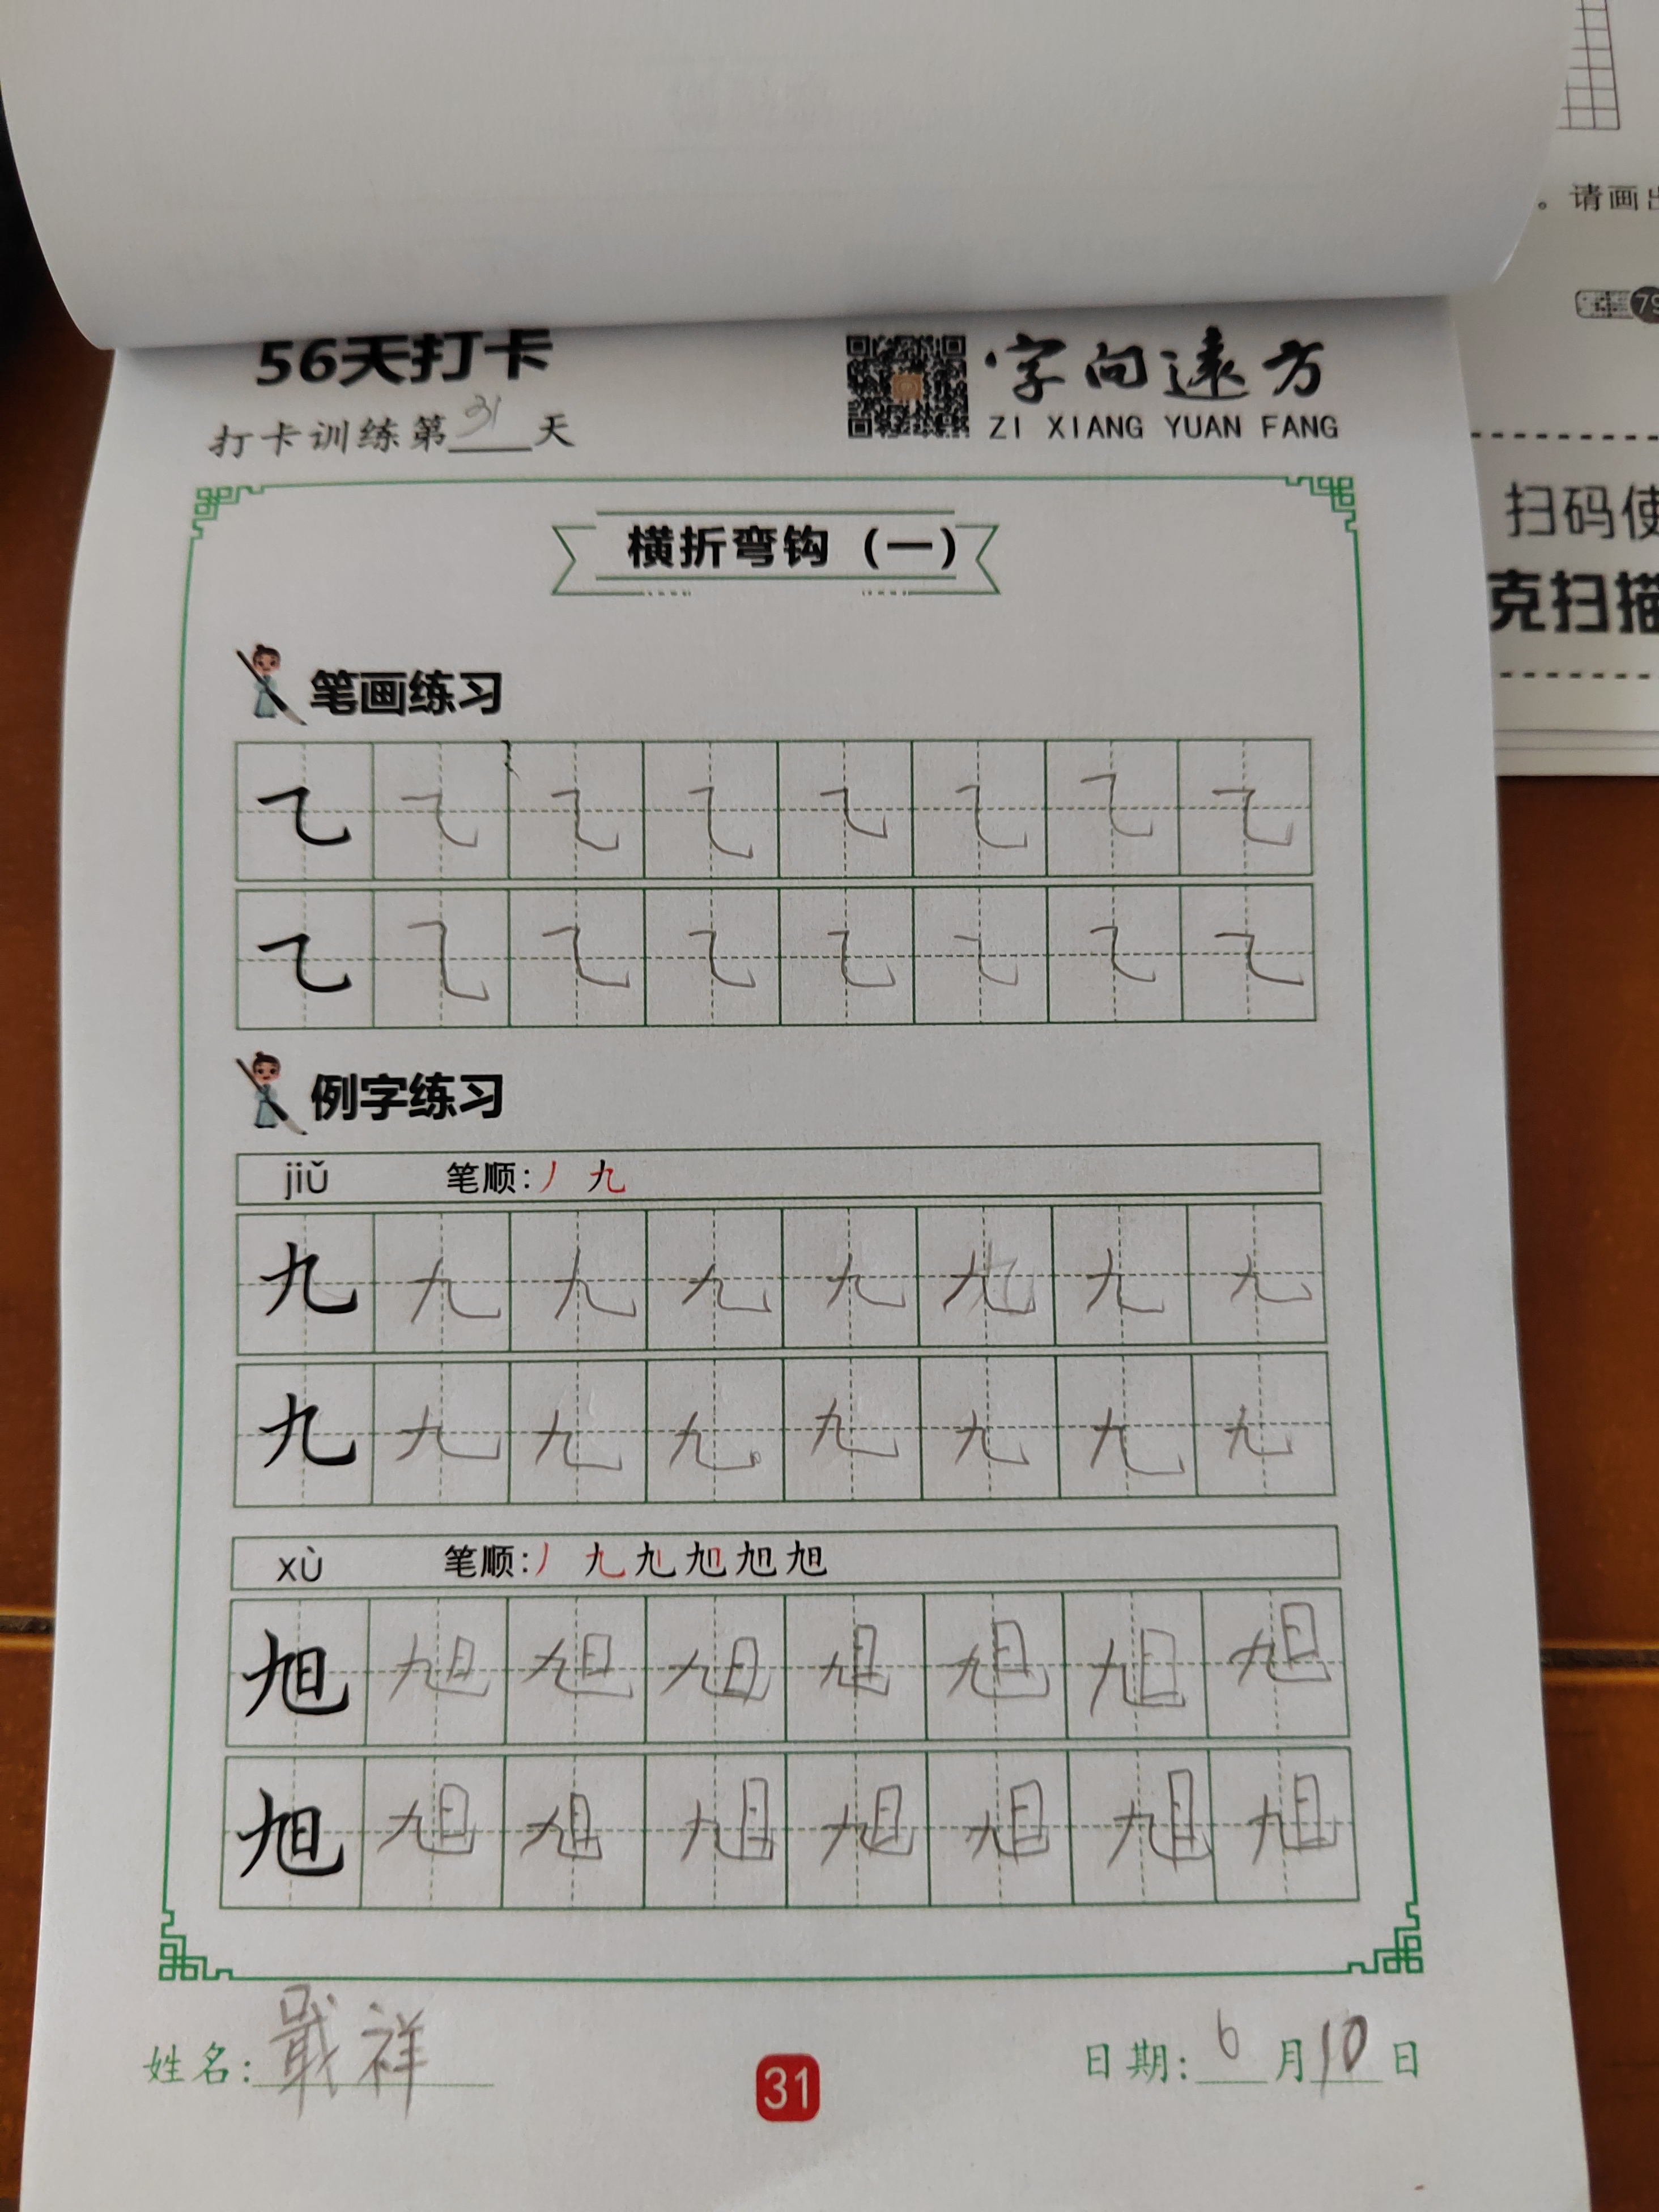 。请画出
79
56天打卡
字向远方
打卡训练第31天
ZI XIANG YUAN FANG
扫码使
克扫描
横折弯钩（一）
笔画练习
㇈ ㇈ ㇈ ㇈ ㇈ ㇈ ㇈ ㇈
㇈ ㇈ ㇈ ㇈ ㇈ ㇈ ㇈ ㇈
例字练习
jiǔ 笔顺:丿 九
九 九 九 九 九 九 九 九
九 九 九 九 九 九 九 九
xù 笔顺:丿 九 旭 旭 旭 旭
旭 旭 旭 旭 旭 旭 旭 旭
旭 旭 旭 旭 旭 旭 旭 旭
姓名: 戢祥
日期: 6月10日
31